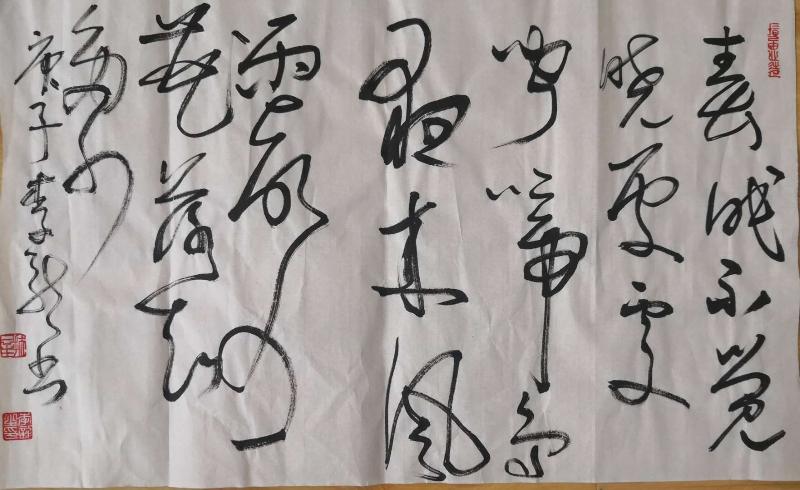 春眠不觉
晓處處
闻啼鸟
夜来风
雨声
花落知
多少
庚子李书